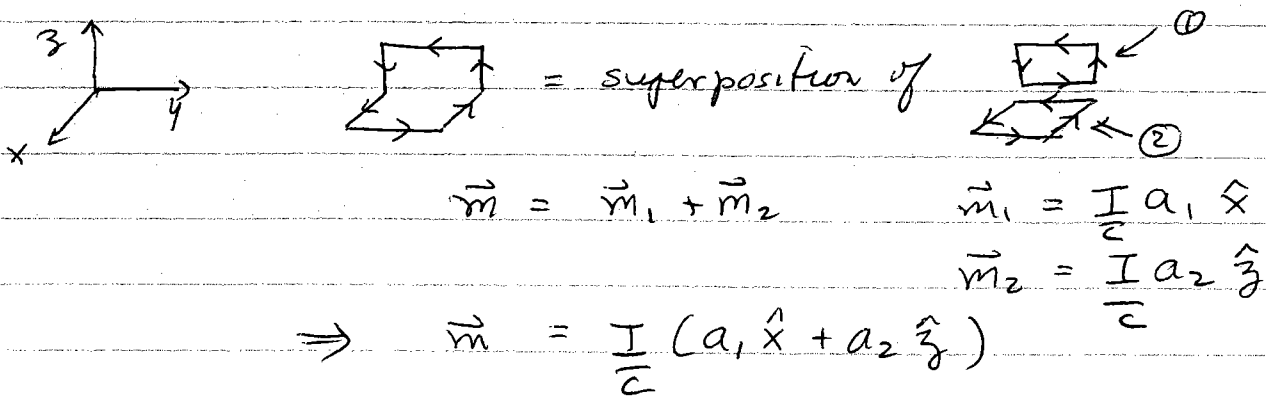 z y x = superposition of ① ②
m⃗ = m⃗₁ + m⃗₂ m⃗₁ = I/c a₁ x̂
m⃗₂ = I/c a₂ ẑ
⇒ m⃗ = I/c (a₁ x̂ + a₂ ẑ)